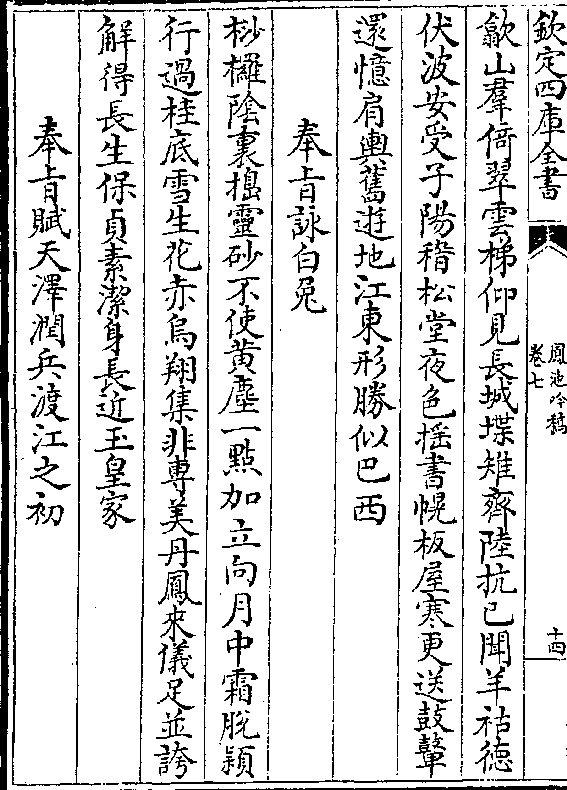 欽定四庫全書
鳳池吟稿
卷七
十四
歙山羣倚翠雲梯仰見長城堞雉齊陸抗已聞羊祜德
伏波安受子陽稽松堂夜色揺書幌板屋寒更送鼓鼙
還憶肩輿舊遊地江東形勝似巴西
奉旨詠白兎
桫欏陰裏搗靈砂不使黄塵一點加立向月中霜脱穎
行過桂底雪生花赤烏翔集非専美丹鳳來儀足並誇
解得長生保貞素潔身長近玉皇家
奉旨賦天澤潤兵渡江之初